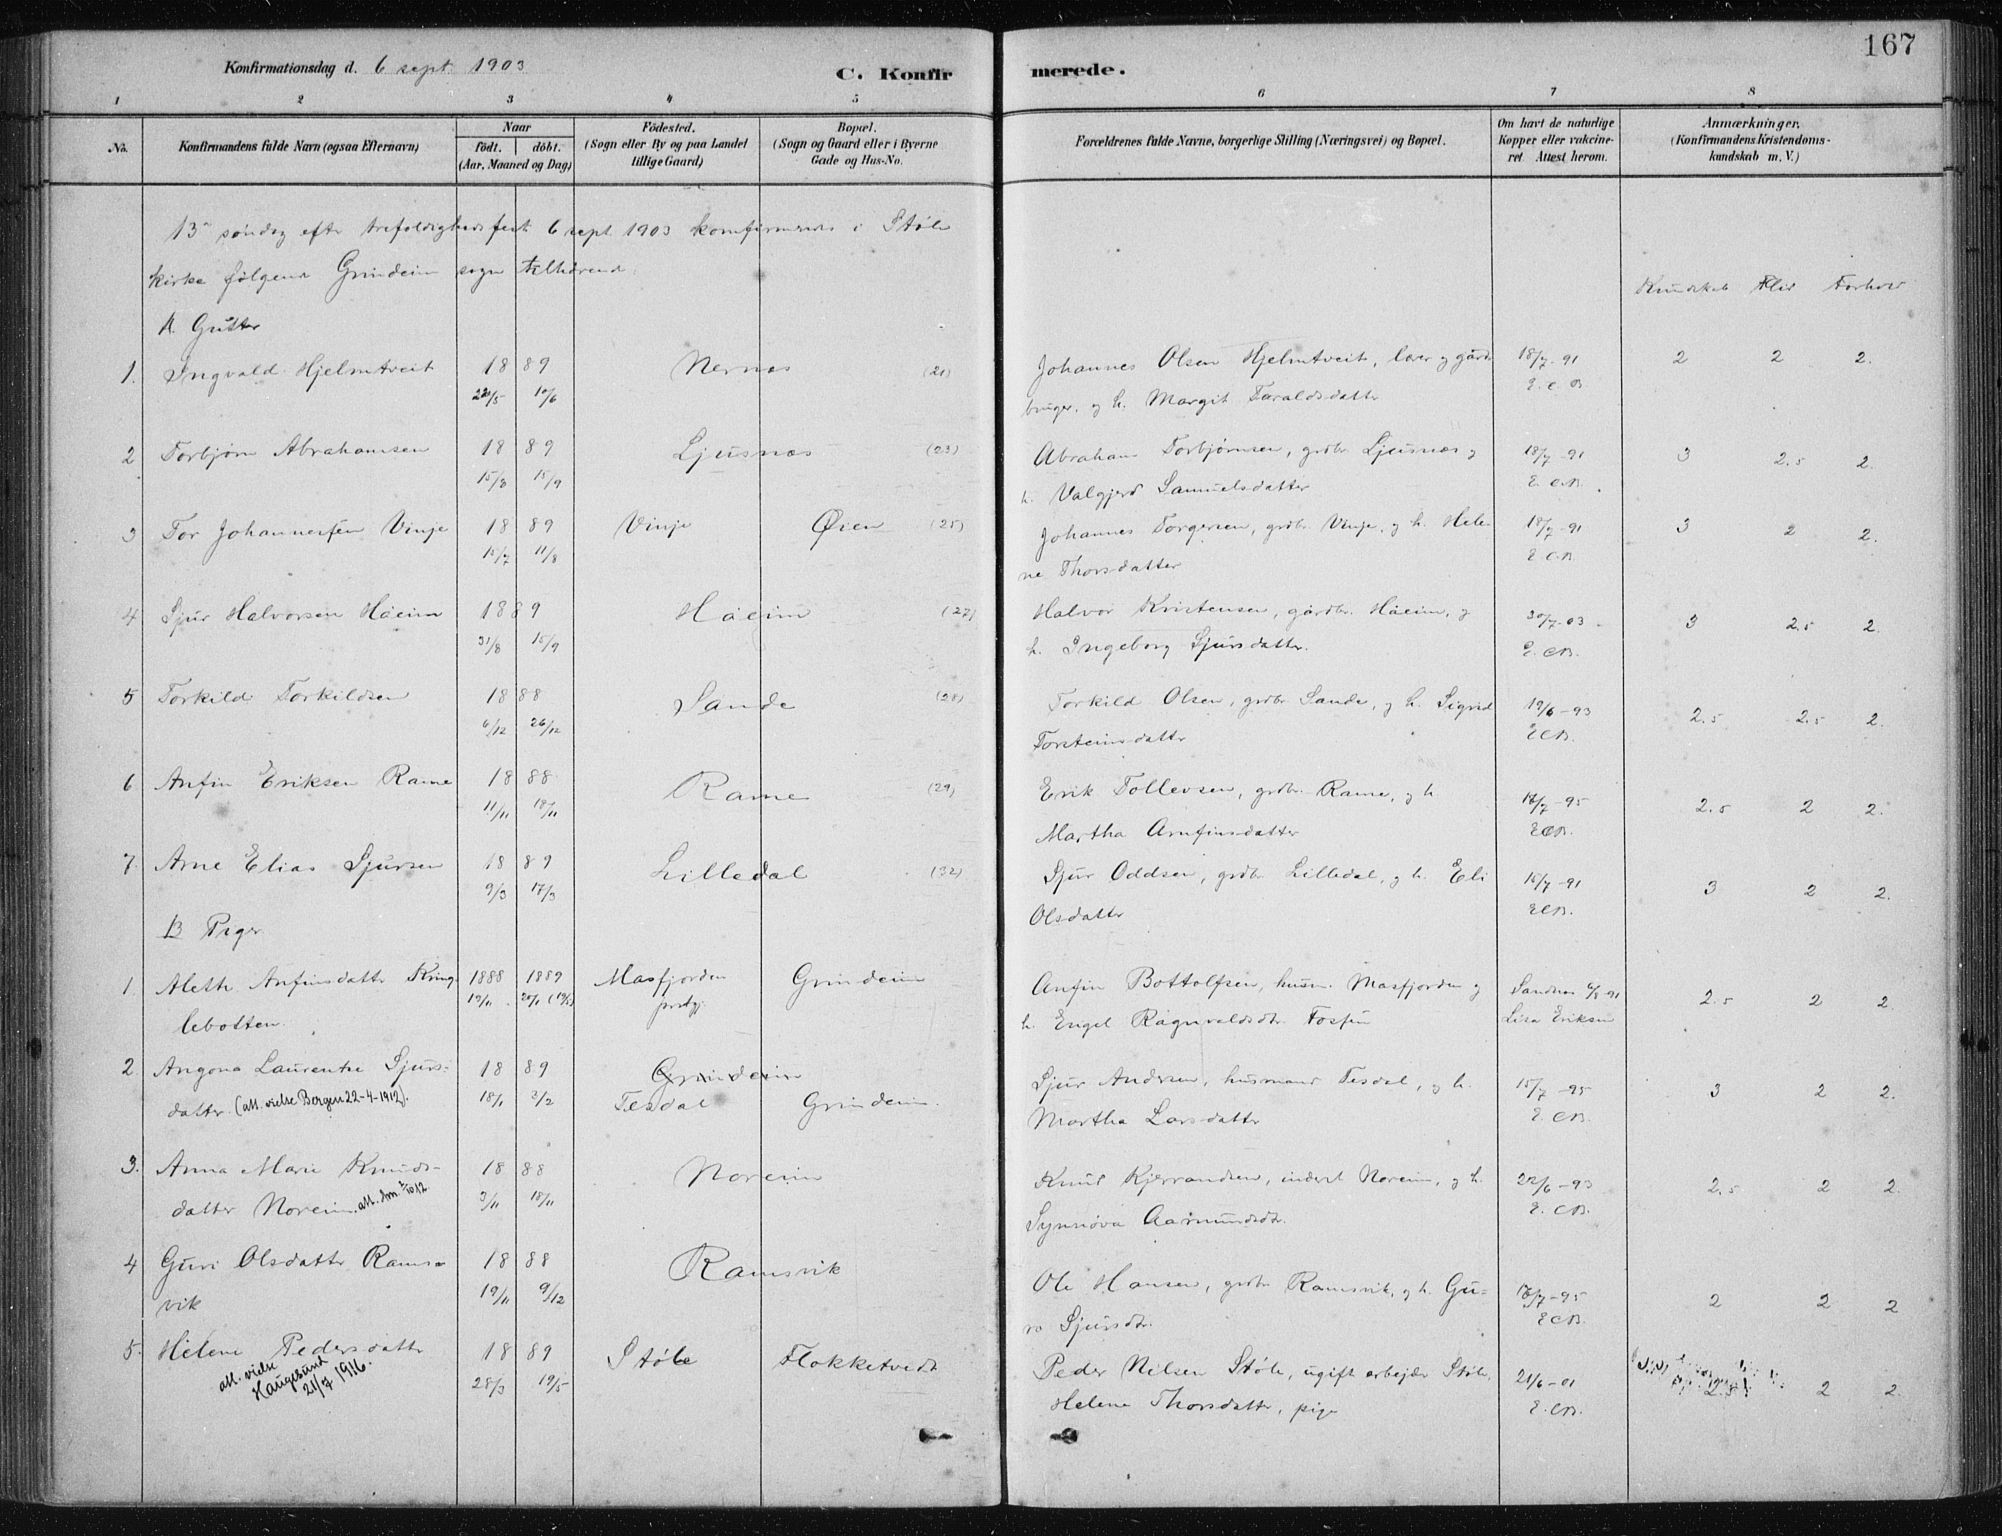 167
Konfirmationsdag d. 6 sept. 1903
C. Konfirmerede.
1 2 3 4 5 6 7 8
No.
Konfirmandens fulde Navn (ogsaa Efternavn)
Naar
födt. döbt.
(Aar, Maaned og Dag)
Födested.
(Sogn eller By og paa Landet
tillige Gaard)
Bopæl.
(Sogn og Gaard eller i Byerne
Gade og Hus-No.
Forældrenes fulde Navne, borgerlige Stilling (Næringsvei) og Bopæl.
Om havt de naturlige
Kopper eller vakcine-
ret. Attest herom.
Anmærkninger,
(Konfirmandens Kristendoms-
kundskab m. V.)
13de søndag efter trefoldighedsfest 6 sept 1903 komfirmeredes i Støle
kirke følgende Grindeim sogn tilhørende:
Kundskab Flid Forhold
A. Gutter
1. Ingvald Hjelmtveit 1889 Nernæs (21) Johannes Olsen Hjelmtveit, lærer og gård- 18/7-91 2 2 2.
22/5 10/6 bruger, og h. Margit Taraldsdatter E.C.B.
2 Torbjørn Abrahamsen 1889 Ljusnæs (23) Abraham Torbjørnsen, grdbr. Ljusnæs og 18/7-91 3 2.5 2.
15/8 15/9 h. Valgjerd Samuelsdatter E.C.B.
3 Tor Johannessen Vinje 1889 Vinje Øien (25) Johannes Torgersen, grdbr. Vinje, og h. Hele- 18/7-91 3 2 2.
15/7 11/8 ne Thorsdatter E.C.B.
4 Sjur Halvorsen Håeim 1889 Håeim (27) Halvor Kristensen, gårdbr. Håeim, og 30/7-03 3 2.5 2.
31/8 15/9 h. Ingeborg Sjursdatter. E.C.B.
5 Torkild Torkildsen 1888 Sande (28) Torkild Olsen, grdbr. Sande, og h. Sigrid 19/6-93 2.5 2.5 2.
6/12 26/12 Torsteinsdatter E.C.B.
6 Anfin Eriksen Rame 1888 Rame (29) Erik Tollevsen, grdbr. Rame, og h. 18/7-95 2.5 2 2.
11/11 18/11 Martha Arnfinsdatter E.C.B.
7. Arne Elias Sjursen 1889 Lilledal (32) Sjur Oddsen, grdbr. Lilledal, og h. Eli 15/7-91 3 2 2.
9/3 17/3 Olsdatter E.C.B.
B Piger
1. Aleth Anfinsdatter Kring- 1888 1889 Masfjorden Grindeim Anfin Bottolfsen, husm. Masfjorden og Sandnes 6/8-91 2.5 2 2.
lebotten. 19/11 20/1 prstgj. h. Engel Ragnvaldsdtr. Fosse Lisa Eriksen
2. Angona Laurentse Sjurs- 1889 Grindeim Sjur Andersen, husmand Tesdal, og h. 15/7-95 3 2 2.
datter. (att. vielse Bergen 22-4-1912). 18/1 3/2 Tesdal Grindeim. Martha Larsdatter E.C.B.
3. Anna Marie Knuds- 1888 Noreim Knut Kjerrandsen, inderst Noreim, og h. 22/6-93 2.5 2 2.
datter Noreim. 3/11 18/11 Synnøva Aamundsdtr. E.C.B.
4 Guri Olsdatter Rams- 1888 Ramsvik Ole Hansen, grdbr. Ramsvik, og h. Gu- 18/7-95 2 2 2
vik 19/11 9/12 ro Sjursdtr. E.C.B.
5. Helene Pedersdatter 1889 Støle Flokketvedt Peder Nilsen Støle, ugift arbejder Støle, 21/6-01 2.5 2 2.
att. vielse
Haugesund
21/7 1916.
28/3 19/5 Helene Thorsdatter, pige E.C.B.